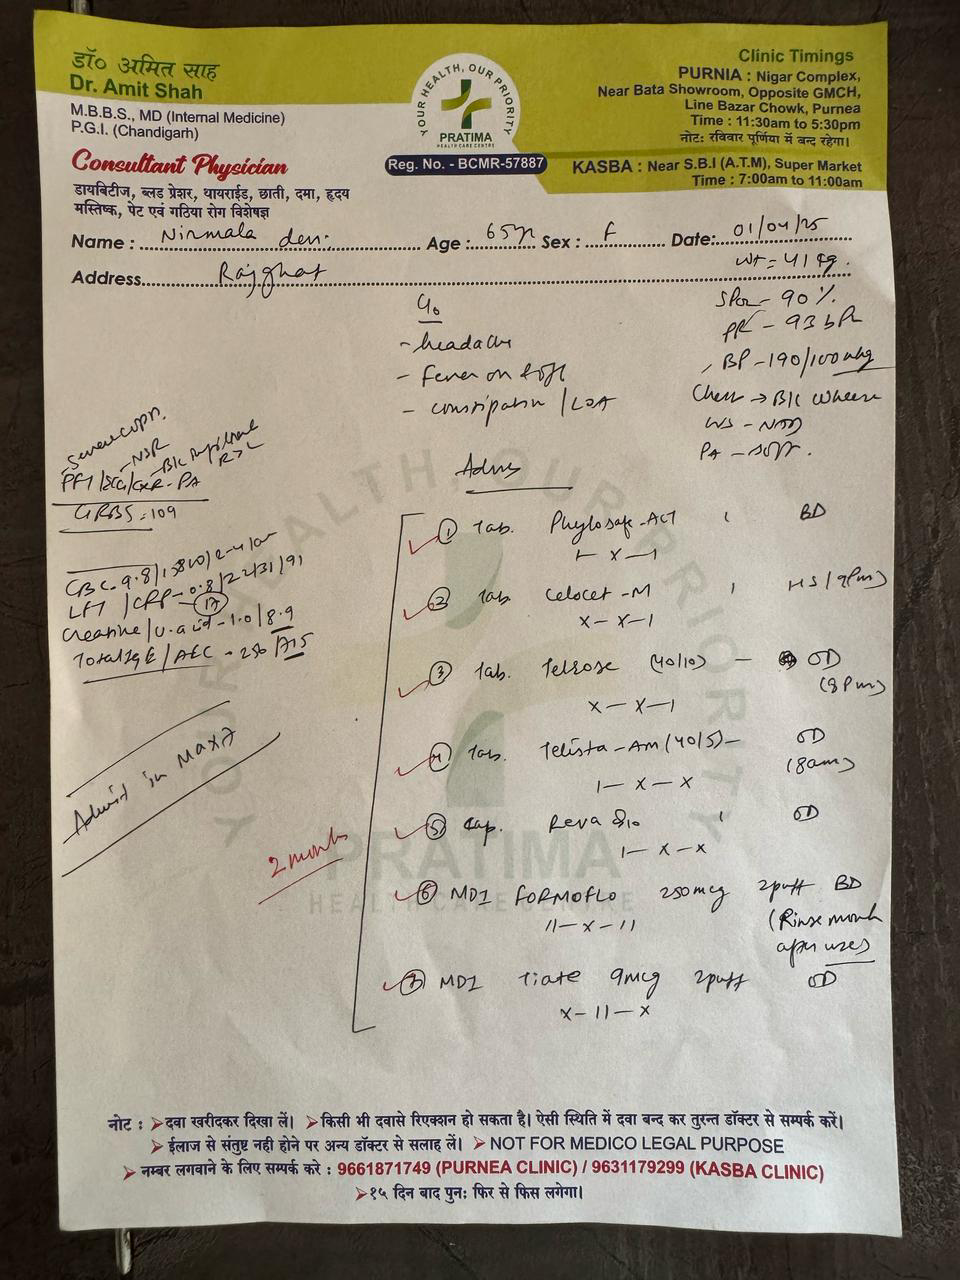 डॉ० अमित साह
Dr. Amit Shah
M.B.B.S., MD (Internal Medicine)
P.G.I. (Chandigarh)
Consultant Physician
डायबिटीज, ब्लड प्रेशर, थायराईड, छाती, दमा, हृदय
मस्तिष्क, पेट एवं गठिया रोग विशेषज्ञ
YOUR HEALTH, OUR PRIORITY
PRATIMA
HEALTH CARE CENTRE
Reg. No. - BCMR-57887
Clinic Timings
PURNIA : Nigar Complex,
Near Bata Showroom, Opposite GMCH,
Line Bazar Chowk, Purnea
Time : 11:30am to 5:30pm
नोट: रविवार पूर्णिया में बन्द रहेगा।
KASBA : Near S.B.I (A.T.M), Super Market
Time : 7:00am to 11:00am
Name : Nirmala devi Age : 65yr Sex : F Date: 01/04/25
Address Rajghat
Wt = 41 kg.
C/o
- headache
- Fever on & off
- constipation / LOA
SPO2 - 90%
PR - 93 bpm
BP - 190/100 mmhg
Chest → B/L wheeze
PA - soft.
PFT / ECG / CXR - PA
- NSR
GRBS = 109
LFT / CRP - 0.8/22/31/91
17
Creatine / U. acid - 1.0 / 8.9
Total IgE / AEC - 256 / 715
Advice
① Tab. Phylosafe-ACT 1 BD
1 - x - 1
② Tab Celocet - M 1 HS (9pm)
x - x - 1
③ Tab. Telrose (40/10) - OD
(8pm)
x - x - 1
④ Tab. Telista - AM (40/5) - OD
(8am)
1 - x - x
⑤ Cap. 1 OD
1 - x - x
2 months
⑥ MDI FORMOFLO 250mcg 2puff BD
11 - x - 11
(Rinse mouth
after uses)
⑦ MDI Tiate 9mcg 2puff OD
x - 11 - x
YOUR HEALTH, OUR PRIORITY
PRATIMA
HEALTH CARE CENTRE
नोट : ➤दवा खरीदकर दिखा लें। ➤किसी भी दवासे रिएक्शन हो सकता है। ऐसी स्थिति में दवा बन्द कर तुरन्त डॉक्टर से सम्पर्क करें।
➤ईलाज से संतुष्ट नही होने पर अन्य डॉक्टर से सलाह लें। ➤NOT FOR MEDICO LEGAL PURPOSE
➤नम्बर लगवाने के लिए सम्पर्क करे : 9661871749 (PURNEA CLINIC) / 9631179299 (KASBA CLINIC)
➤१५ दिन बाद पुन: फिर से फिस लगेगा।